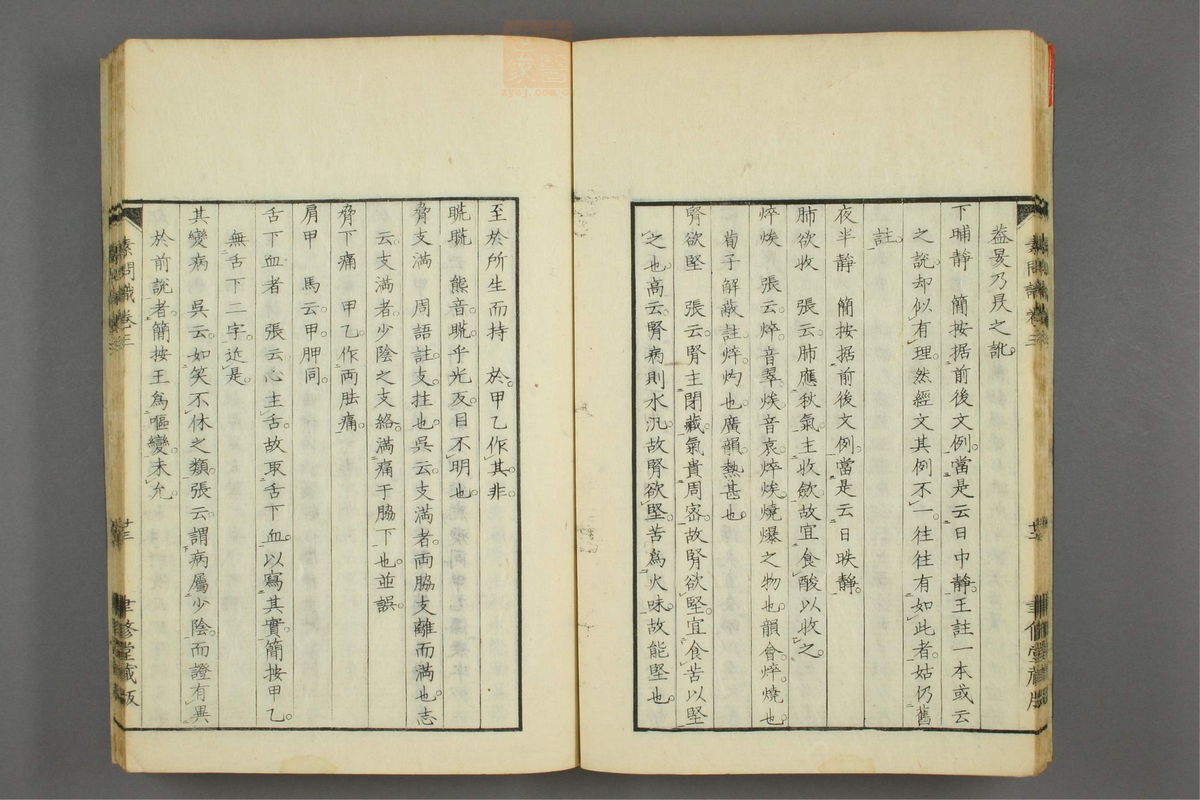 益晏乃昃之訛
下晡靜　簡按据前後文例當是云日中靜王註一本或云
之說却似有理然經文其例不一往往有如此者姑仍舊
註
夜半靜　簡按据前後文例當是云日昳靜
肺欲收　張云肺應秋氣主收斂故宜食酸以收之
焠㶼　張云焠音翠㶼音哀焠㶼燒爆之物也韻會焠燒也
荀子解蔽註焠灼也廣韻熱甚也
腎欲堅　張云腎主閉藏氣貴周密故腎欲堅宜食苦以堅
之也高云腎病則水汎故腎欲堅苦爲火味故能堅也
素問識卷三
廿三
聿修堂藏版
至於所生而持　於甲乙作其非
䀮䀮　熊音䀮乎光反目不明也
脅支滿　周語註支拄也吳云支滿者両脇支離而滿也志
云支滿者少陰之支絡滿痛于脇下也並誤
脅下痛　甲乙作両胠痛
肩甲　馬云甲胛同
舌下血者　張云心主舌故取舌下血以寫其實簡按甲乙
無舌下二字近是
其變病　吳云如笑不休之類張云謂病屬少陰而證有異
於前說者簡按王爲嘔變未允
素問識卷三
廿三
聿修堂藏版